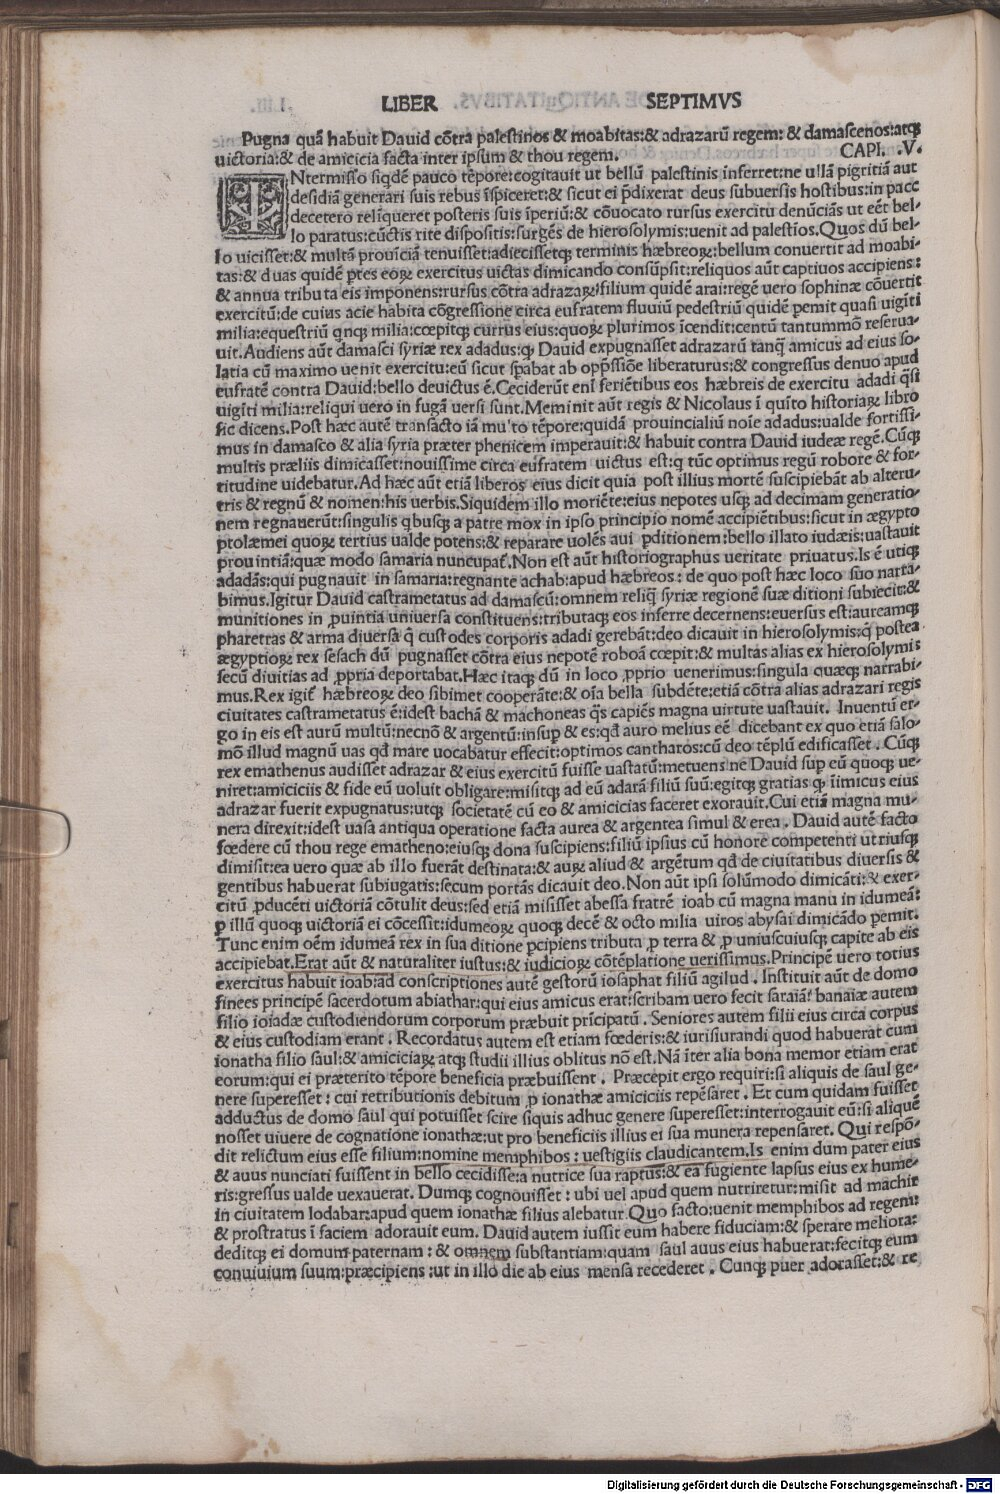 LIBER SEPTIMVS
Pugna quā habuit Dauid cōtra palestinos & moabitas:& adrazarū regem: & damascenos:atqꝫ
uictoria:& de amicicia facta inter ipsum & thou regem. CAPI. .V.
INtermisso siqdē pauco tēpore:cogitauit ut bellū palestinis inferret:ne ullā pigritiā aut
desidiā generari suis rebus īspiceret:& sicut ei p̄dixerat deus subuersis hostibus:in pace
decetero relīqueret posteris suis īperiū:& cōuocato rursus exercitu denūciās ut eēt bel⸗
lo paratus:cūctis rite dispositis:surgēs de hierosolymis:uenit ad palestīos.Quos dū bel⸗
lo uicisset:& multā prouīciā tenuisset:adiecissetqꝫ terminis hæbreoꝝ:bellum conuertit ad moabi⸗
tas:& duas quidē ptes eoꝝ exercitus uictas dimicando consūpsit:reliquos aūt captiuos accipiens:
& annua tributa eis imponens:rursus cōtra adrazaꝝ:filium quidē arai:regē uero sophinæ cōuertit
exercitū:de cuius acie habita cōgressione circa eufratem fluuiū pedestriū quidē pemit quasi uigīti
milia:equestriū qnqꝫ milia:cœpitqꝫ currus eius:quoꝝ plurimos īcendit:centū tantummō reserua⸗
uit.Audiens aūt damasci syriæ rex adadus:qꝫ Dauid expugnasset adrazarū tanq̄ amicus ad eius so⸗
latia cū maximo uenit exercitu:eū sicut spabat ab opp̄ssiōe liberaturus:& congressus denuo apud
eufratē contra Dauid:bello deuictus ē.Cecidērūt enī feriētibus eos hæbreis de exercitu adadi q̄si
uigīti milia:reliqui uero in fugā uersi sunt.Meminit aūt regis & Nicolaus ī quīto historiaꝝ libro
sic dicens.Post hæc autē transacto iā multo tēpore:quidā prouincialiū noīe adadus:ualde fortissi⸗
mus in damasco & alia syria præter phenicem imperauit:& habuit contra Dauid iudeæ regē.Cūqꝫ
multis præliis dimicasset:nouissime circa eufratem uictus est:q tūc optimus regū robore & for⸗
titudine uidebatur.Ad hæc aūt etiā liberos eius dicit quia post illius mortē suscipiebāt ab alteru⸗
tris & regnū & nomen:his uerbis.Siquidem illo moriēte:eius nepotes usqꝫ ad decimam generatio⸗
nem regnauerūt:singulis qbusqꝫ a patre mox in ipso principio nomē accipiētibus:sicut in ægypto
ptolæmei quoꝝ tertius ualde potens:& reparare uolēs aui pditionem:bello illato iudæis:uastauit
prouintiā:quæ modo samaria nuncupat̄.Non est aūt historiographus ueritate priuatus.Is ē utiqꝫ
adadās:qui pugnauit in samaria:regnante achab:apud hæbreos: de quo post hæc loco suo narra⸗
bimus.Igitur Dauid castrametatus ad damascū:omnem reliq̄ syriæ regionē suæ ditioni subiecit:&
munitiones in ꝓuintia uniuersa constituens:tributaqꝫ eos inferre decernens:euersus est:aureamqꝫ
pharetras & arma diuersa q̄ custodes corporis adadi gerebāt:deo dicauit in hierosolymis:q̄ postea
ægyptioꝝ rex sesach dū pugnasset cōtra eius nepotē roboā cœpit:& multas alias ex hierosolymis
secū diuitias ad ꝓpria deportabat.Hæc itaqꝫ dū in loco ꝓprio uenerimus:singula quæqꝫ narrabi⸗
mus.Rex igit̄ hæbreoꝝ deo sibimet cooperāte:& oīa bella subdēte:etiā cōtra alias adrazari regis
ciuitates castrametatus ē:idest bachā & machoneas q̄s capiēs magna uirtute uastauit. Inuentū er⸗
go in eis est aurū multū:necnō & argentū:insup & es:qđ auro melius eē dicebant ex quo etiā salo⸗
mō illud magnū uas qđ mare uocabatur effecit:optimos cantharos:cū deo tēplū edificasset. Cūqꝫ
rex emathenus audisset adrazar & eius exercitū fuisse uastatū:metuens ne Dauid sup eū quoqꝫ ue⸗
niret:amiciciis & fide eū uoluit obligare:misitqꝫ ad eū adarā filiū suū:egitqꝫ gratias qꝫ īimicus eius
adrazar fuerit expugnatus:utqꝫ societatē cū eo & amicicias faceret exorauit.Cui etiā magna mu⸗
nera direxit:idest uasa antiqua operatione facta aurea & argentea simul & erea. Dauid autē facto
fœdere cū thou rege ematheno:eiusqꝫ dona suscipiens:filiū ipsius cū honore competenti utriusqꝫ
dimisit:ea uero quæ ab illo fuerāt destinata:& auꝝ aliud & argētum qđ de ciuitatibus diuersis &
gentibus habuerat subiugatis:secum portās dicauit deo.Non aūt ipsi solūmodo dimicāti:& exer⸗
citū ꝓducēti uictoriā cōtulit deus:sed etiā misisset abessa fratrē ioab cū magna manu in idumeā:
ꝑ illū quoqꝫ uictoriā ei cōcessit:idumeoꝝ quoqꝫ decē & octo milia uiros abysai dimicādo pemit.
Tunc enim oēm idumeā rex in sua ditione pcipiens tributa ꝑ terra & ꝑ uniuscuiusqꝫ capite ab eis
accipiebat.Erat aūt & naturaliter iustus:& iudicioꝝ cōtēplatione uerissimus.Principē uero totius
exercitus habuit ioab:ad conscriptiones autē gestorū iosaphat filiū agilud. Instituit aūt de domo
finees principē sacerdotum abiathar:qui eius amicus erat:scribam uero fecit saraiā: banaiæ autem
filio ioiadæ custodiendorum corporum præbuit prīcipatū. Seniores autem filii eius circa corpus
& eius custodiam erant. Recordatus autem est etiam fœderis:& iurisiurandi quod habuerat cum
ionatha filio saul:& amiciciaꝝ atqꝫ studii illius oblitus nō est.Nā īter alia bona memor etiam erat
eorum:qui ei præterito tēpore beneficia præbuissent. Præcepit ergo requiri:si aliquis de saul ge⸗
nere superesset: cui retributionis debitum ꝑ ionathæ amiciciis repēsaret. Et cum quidam fuisset
adductus de domo saul qui potuisset scire siquis adhuc genere superesset:interrogauit eū:si aliquē
nosset uiuere de cognatione ionathæ:ut pro beneficiis illius ei sua munera repensaret. Qui respō⸗
dit relictum eius esse filium:nomine memphibos: uestigiis claudicantem.Is enim dum pater eius
& auus nunciati fuissent in bello cecidisse:a nutrice sua raptus:& ea fugiente lapsus eius ex hume⸗
ris:gressus ualde uexauerat. Dumqꝫ cognouisset: ubi uel apud quem nutriretur:misit ad machir
in ciuitatem lodabar:apud quem ionathæ filius alebatur.Quo facto:uenit memphibos ad regem:
& prostratus ī faciem adorauit eum. Dauid autem iussit eum habere fiduciam:& sperare meliora:
deditqꝫ ei domum paternam: & omnem substantiam:quam saul auus eius habuerat:fecitqꝫ eum
conuiuium suum:præcipiens:ut in illo die ab eius mensa recederet. Cunqꝫ puer adorasset:& re
Digitalisierung gefördert durch die Deutsche Forschungsgemeinschaft - DFG